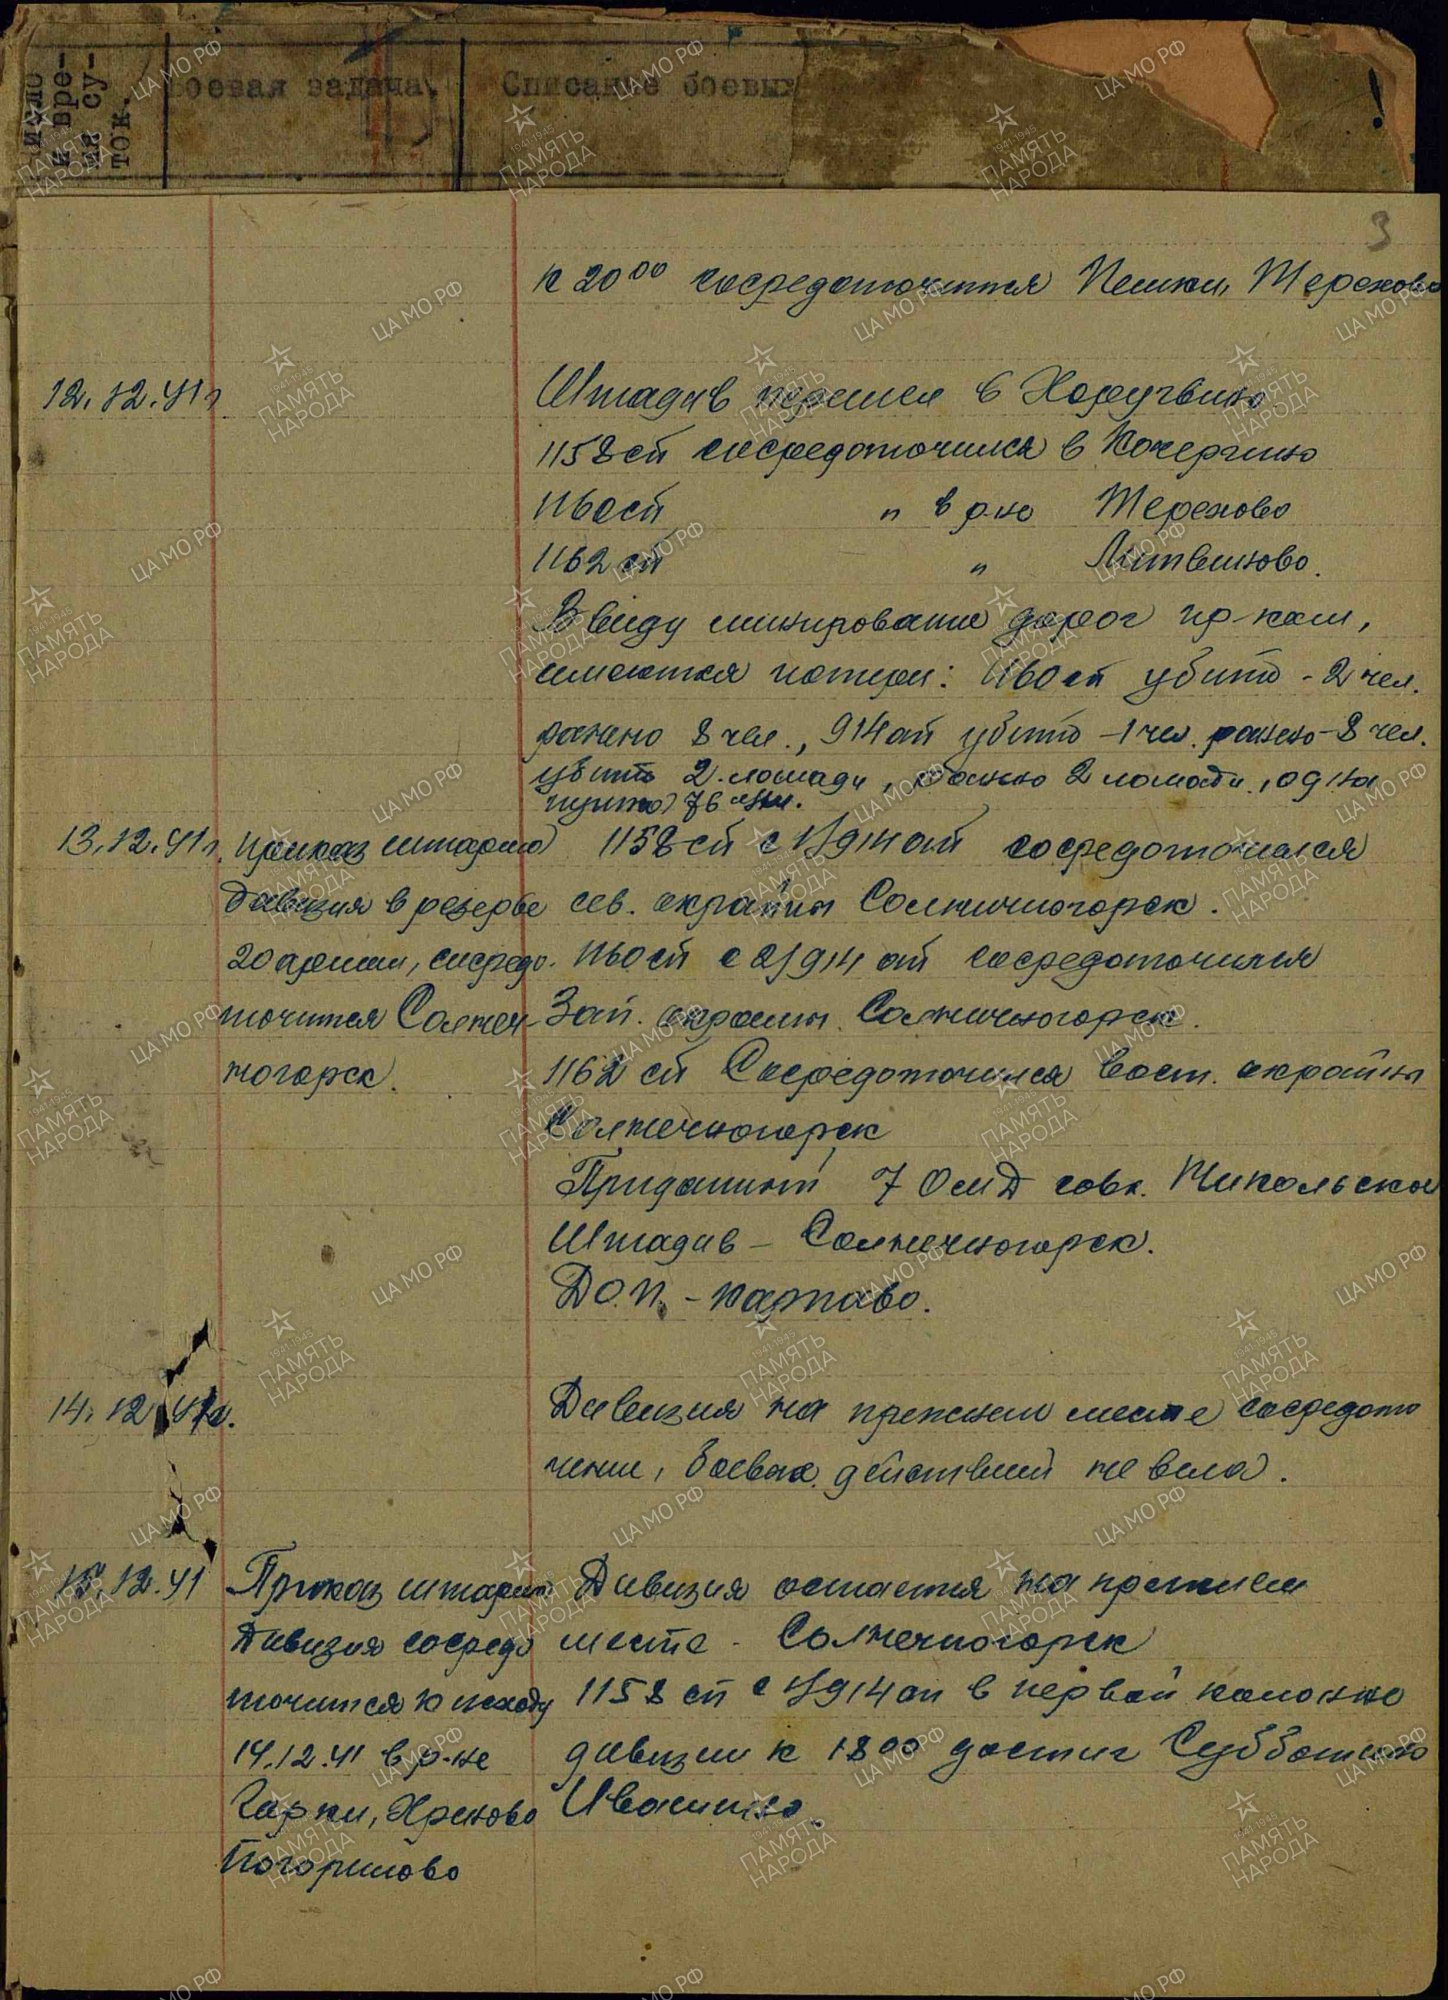 исло
и вре-
мя су-
ток.
Боевая задача.
Списание боевых
3
к 20⁰⁰ сосредоточится Пешки, Терехово
12.12.41г.
Штадив перешел в Хоругвино
1158 сп сосредоточился в Кочергино
1160 сп " в р-не Терехово
1162 сп " Литвиново.
Ввиду минирования дорог пр-ком,
имеются потери: 1160 сп убито - 2 чел.
ранено 8 чел., 914 ап убито - 1 чел. ранено - 8 чел.
убито 2 лошади, ранено 2 лошади, одна
пушка 76 мм.
13.12.41г.
Приказ штарма
Дивизия в резерве
20 армии, сосредо-
точится Солнеч-
ногорск.
1158 сп с 1/914 ап сосредоточился
сев. окраины Солнечногорск.
1160 сп с 2/914 ап сосредоточился
Зап. окраины Солнечногорск.
1162 сп Сосредоточился вост. окраины
Солнечногорск
Приданный 7 ОМД совх. Никольское
Штадив - Солнечногорск.
ДОП. - Картаво.
14.12.41г.
Дивизия на прежнем месте сосредото
чения, боевых действий не вела.
15.12.41
Приказ штарма
Дивизия сосредо
точится к исходу
14.12.41 в р-не
Горки, Хреново
Погорелово
Дивизия остается на прежнем
месте - Солнечногорск
1158 сп с 1/914 ап в первой колонне
дивизии к 18⁰⁰ достиг Субботино
Ивашино.